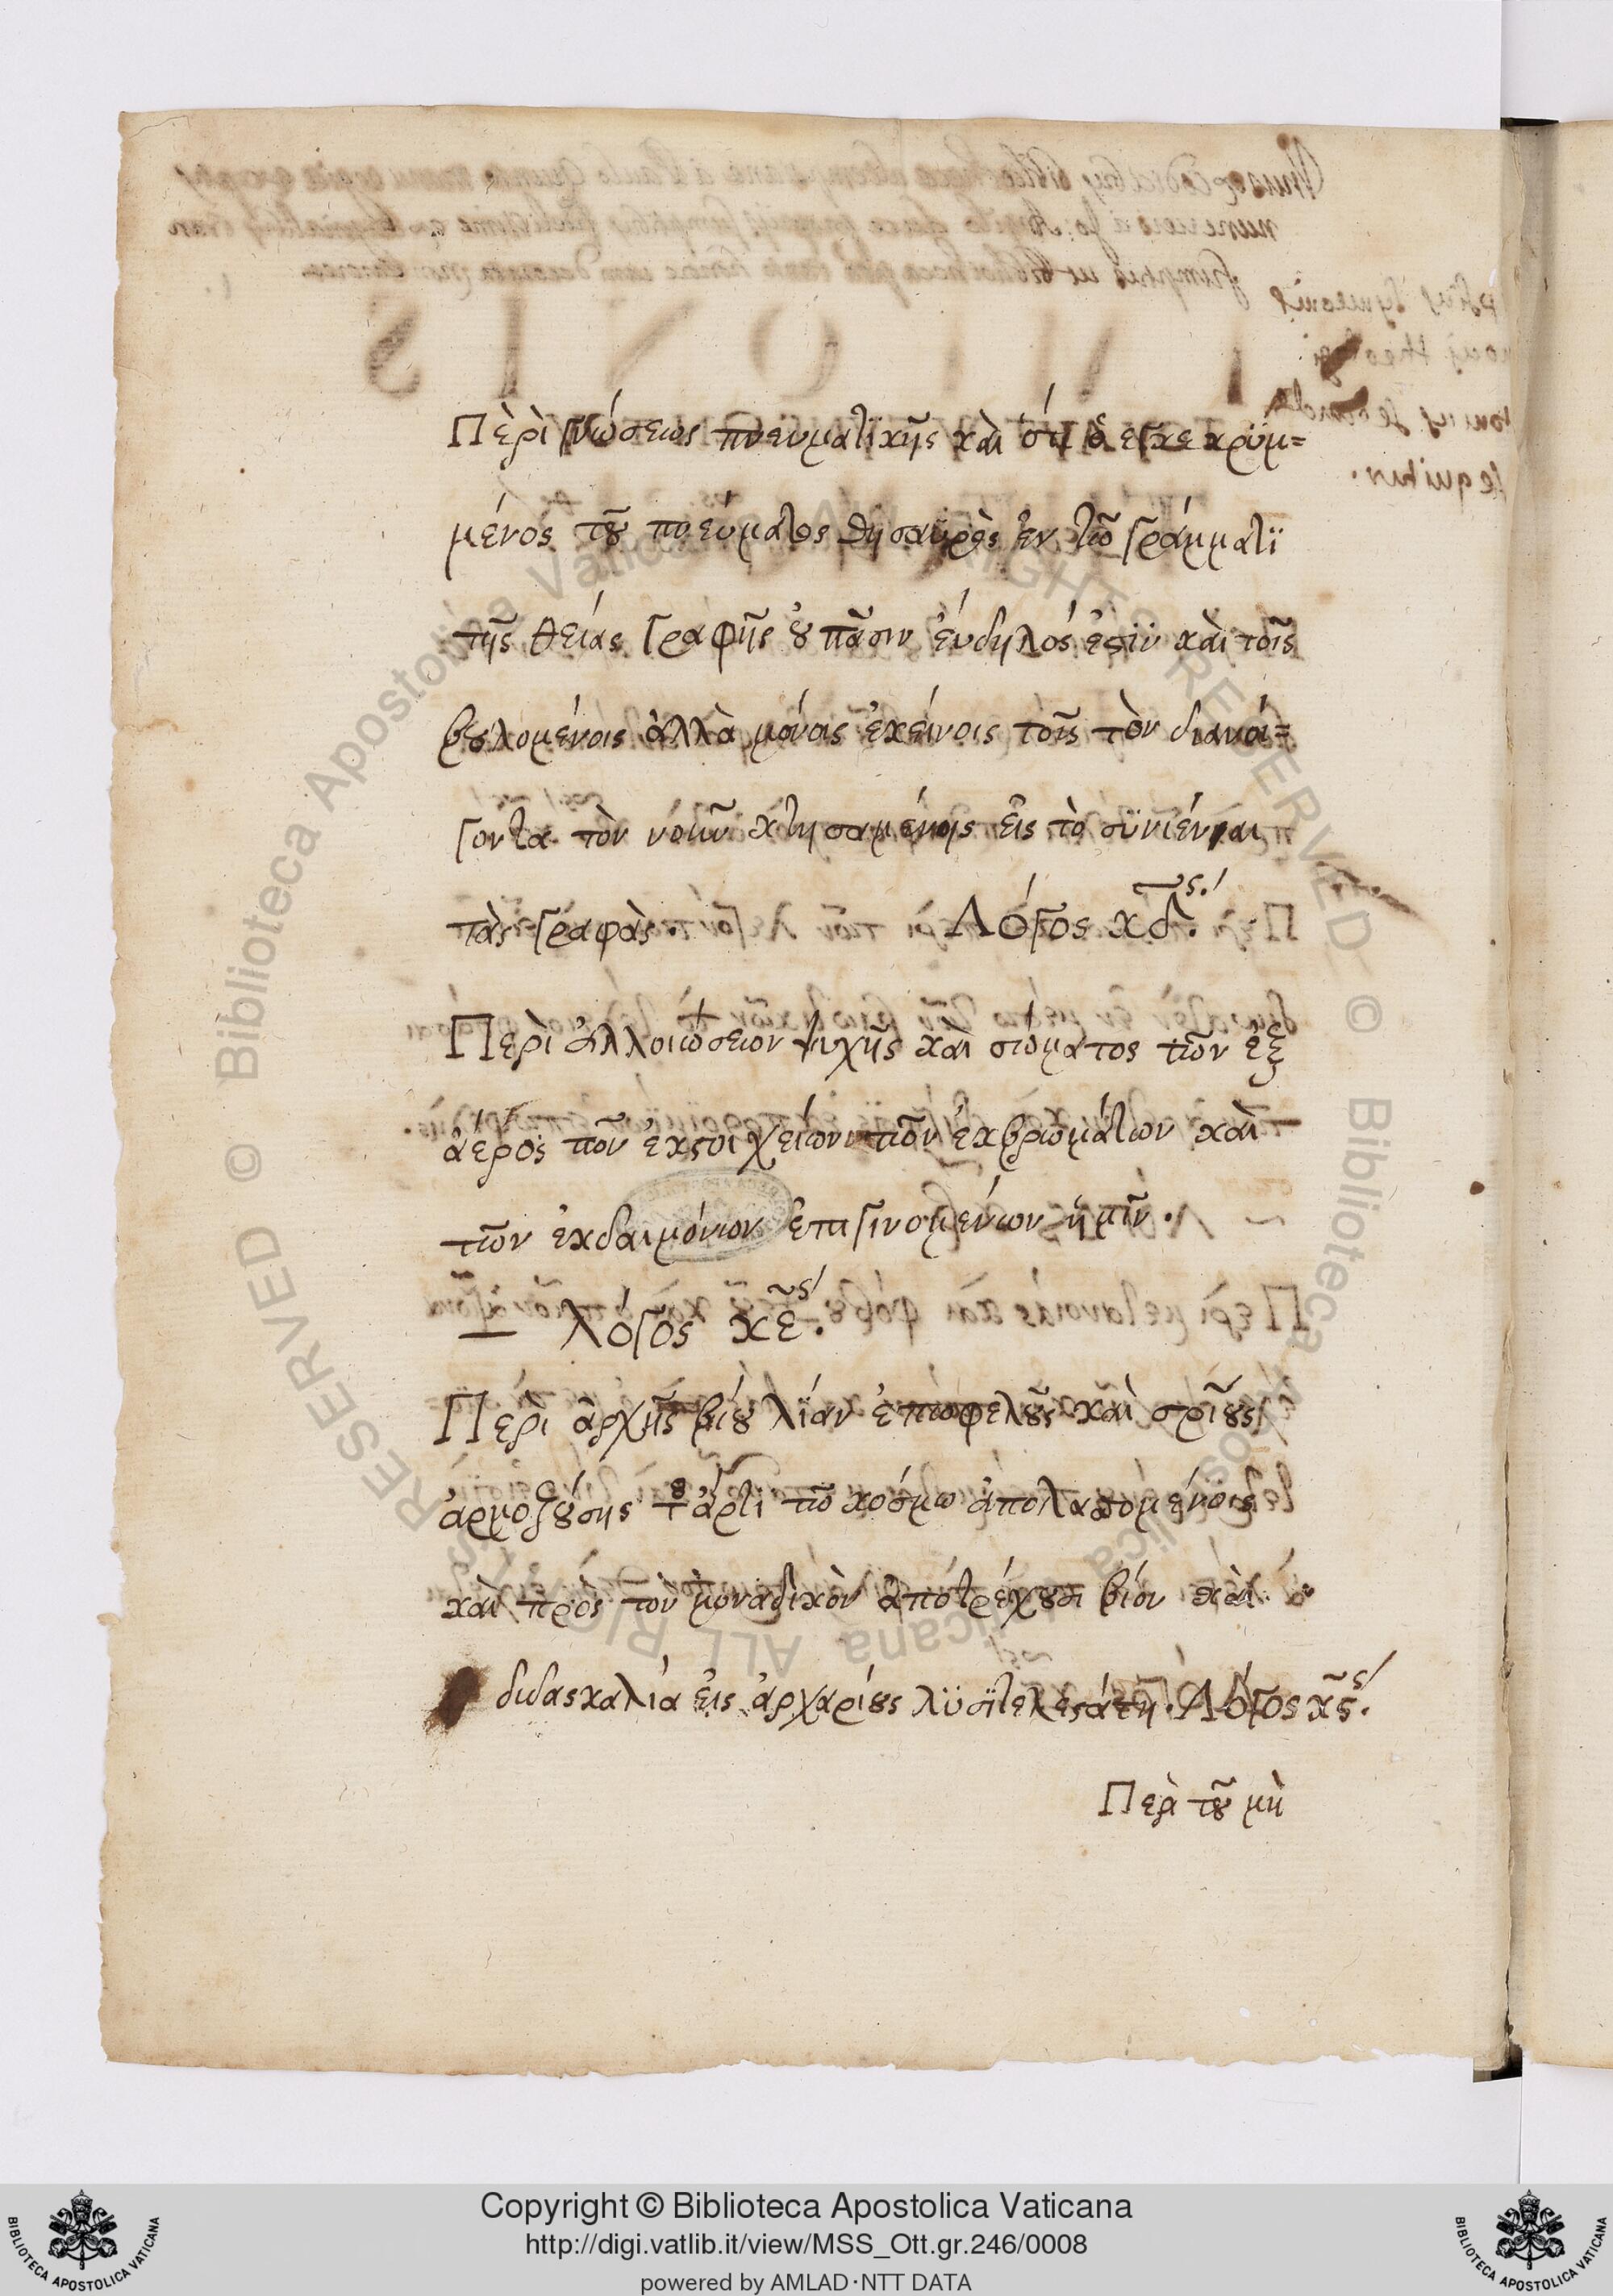 Περὶ γνώσεως πνευματικῆς καὶ ὅτι ὁ εγκεκρϋμ=
μένος τοῦ πνεύματος θησαυρὸς ἐν τῶ γράμματϊ
τῆς θείας γραφῆς οὐ πᾶσιν ἔυδηλός ἐστϊν καὶ τοῖς
βουλομένοις ἀλλὰ μόνοις ἐκείνοις τοῖς τὸν διανοί=
γοντα τὸν νοῦν κτησαμένοις εἰς τὸ σϋνϊέναι
τὰς γραφὰς. Λόγος κδ.ος
Περὶ ἀλλοιώσεων ψυχῆς καὶ σώματος τῶν ἐξ
ἀέρος τῶν ἐκστοιχείων τῶν ἐκβρωμάτων καὶ
τῶν ἐκδαιμόνιων ἐπιγινομένων ἡμῖν.
Λόγος κε.ος
Περὶ ἀρχῆς βίου λϊάν ἐπωφελοῦς καὶ σρίους
ἁρμοζούσης τοῦ ἄρτϊ τῶ κόσμω ἀποταττομένοις
καὶ πρὸς τὸν μοναδικὸν ἀποτρέχουσι βίον καὶ
διδασκαλϊα εἰς ἀρχαρίους λϋσϊτελεστάτη. Λόγος κς.ος
Περὶ τοῦ μὴ
Copyright © Biblioteca Apostolica Vaticana
http://digi.vatlib.it/view/MSS_Ott.gr.246/0008
powered by AMLAD·NTT DATA
BIBLIOTECA APOSTOLICA VATICANA
BIBLIOTECA APOSTOLICA VATICANA